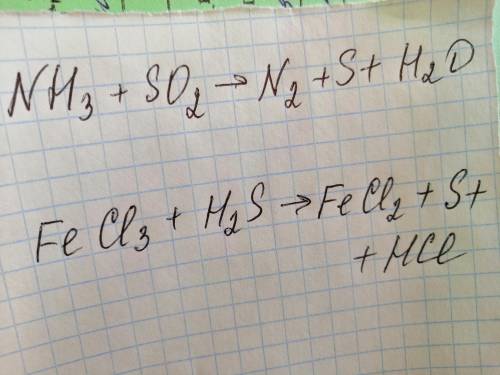 NH₃ + SO₂ → N₂ + S + H₂O
FeCl₃ + H₂S → FeCl₂ + S +
+ HCl